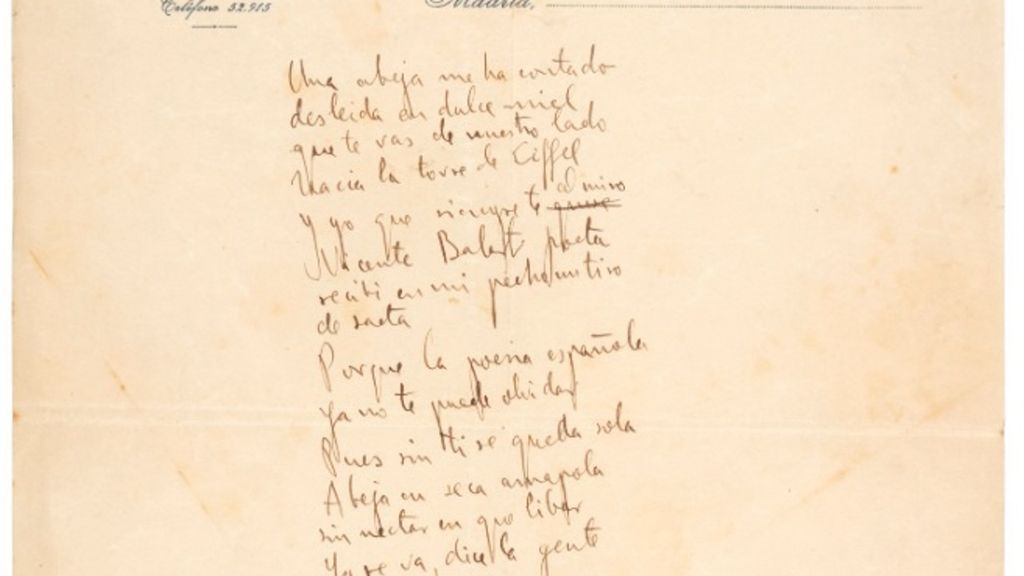 Teléfono 52.915
Madrid,
Una abeja me ha contado
desleida en dulce miel
que te vas de nuestro lado
hacia la torre de Eiffel
y yo que siempre te admiro
Vicente
poeta
recibi en mi pecho un tiro
de saeta
Porque la poesia española
ya no te puede olvidar
Pues sin ti se queda sola
Abeja en seca amapola
sin nectar en que libar
Ya se va, dice la gente